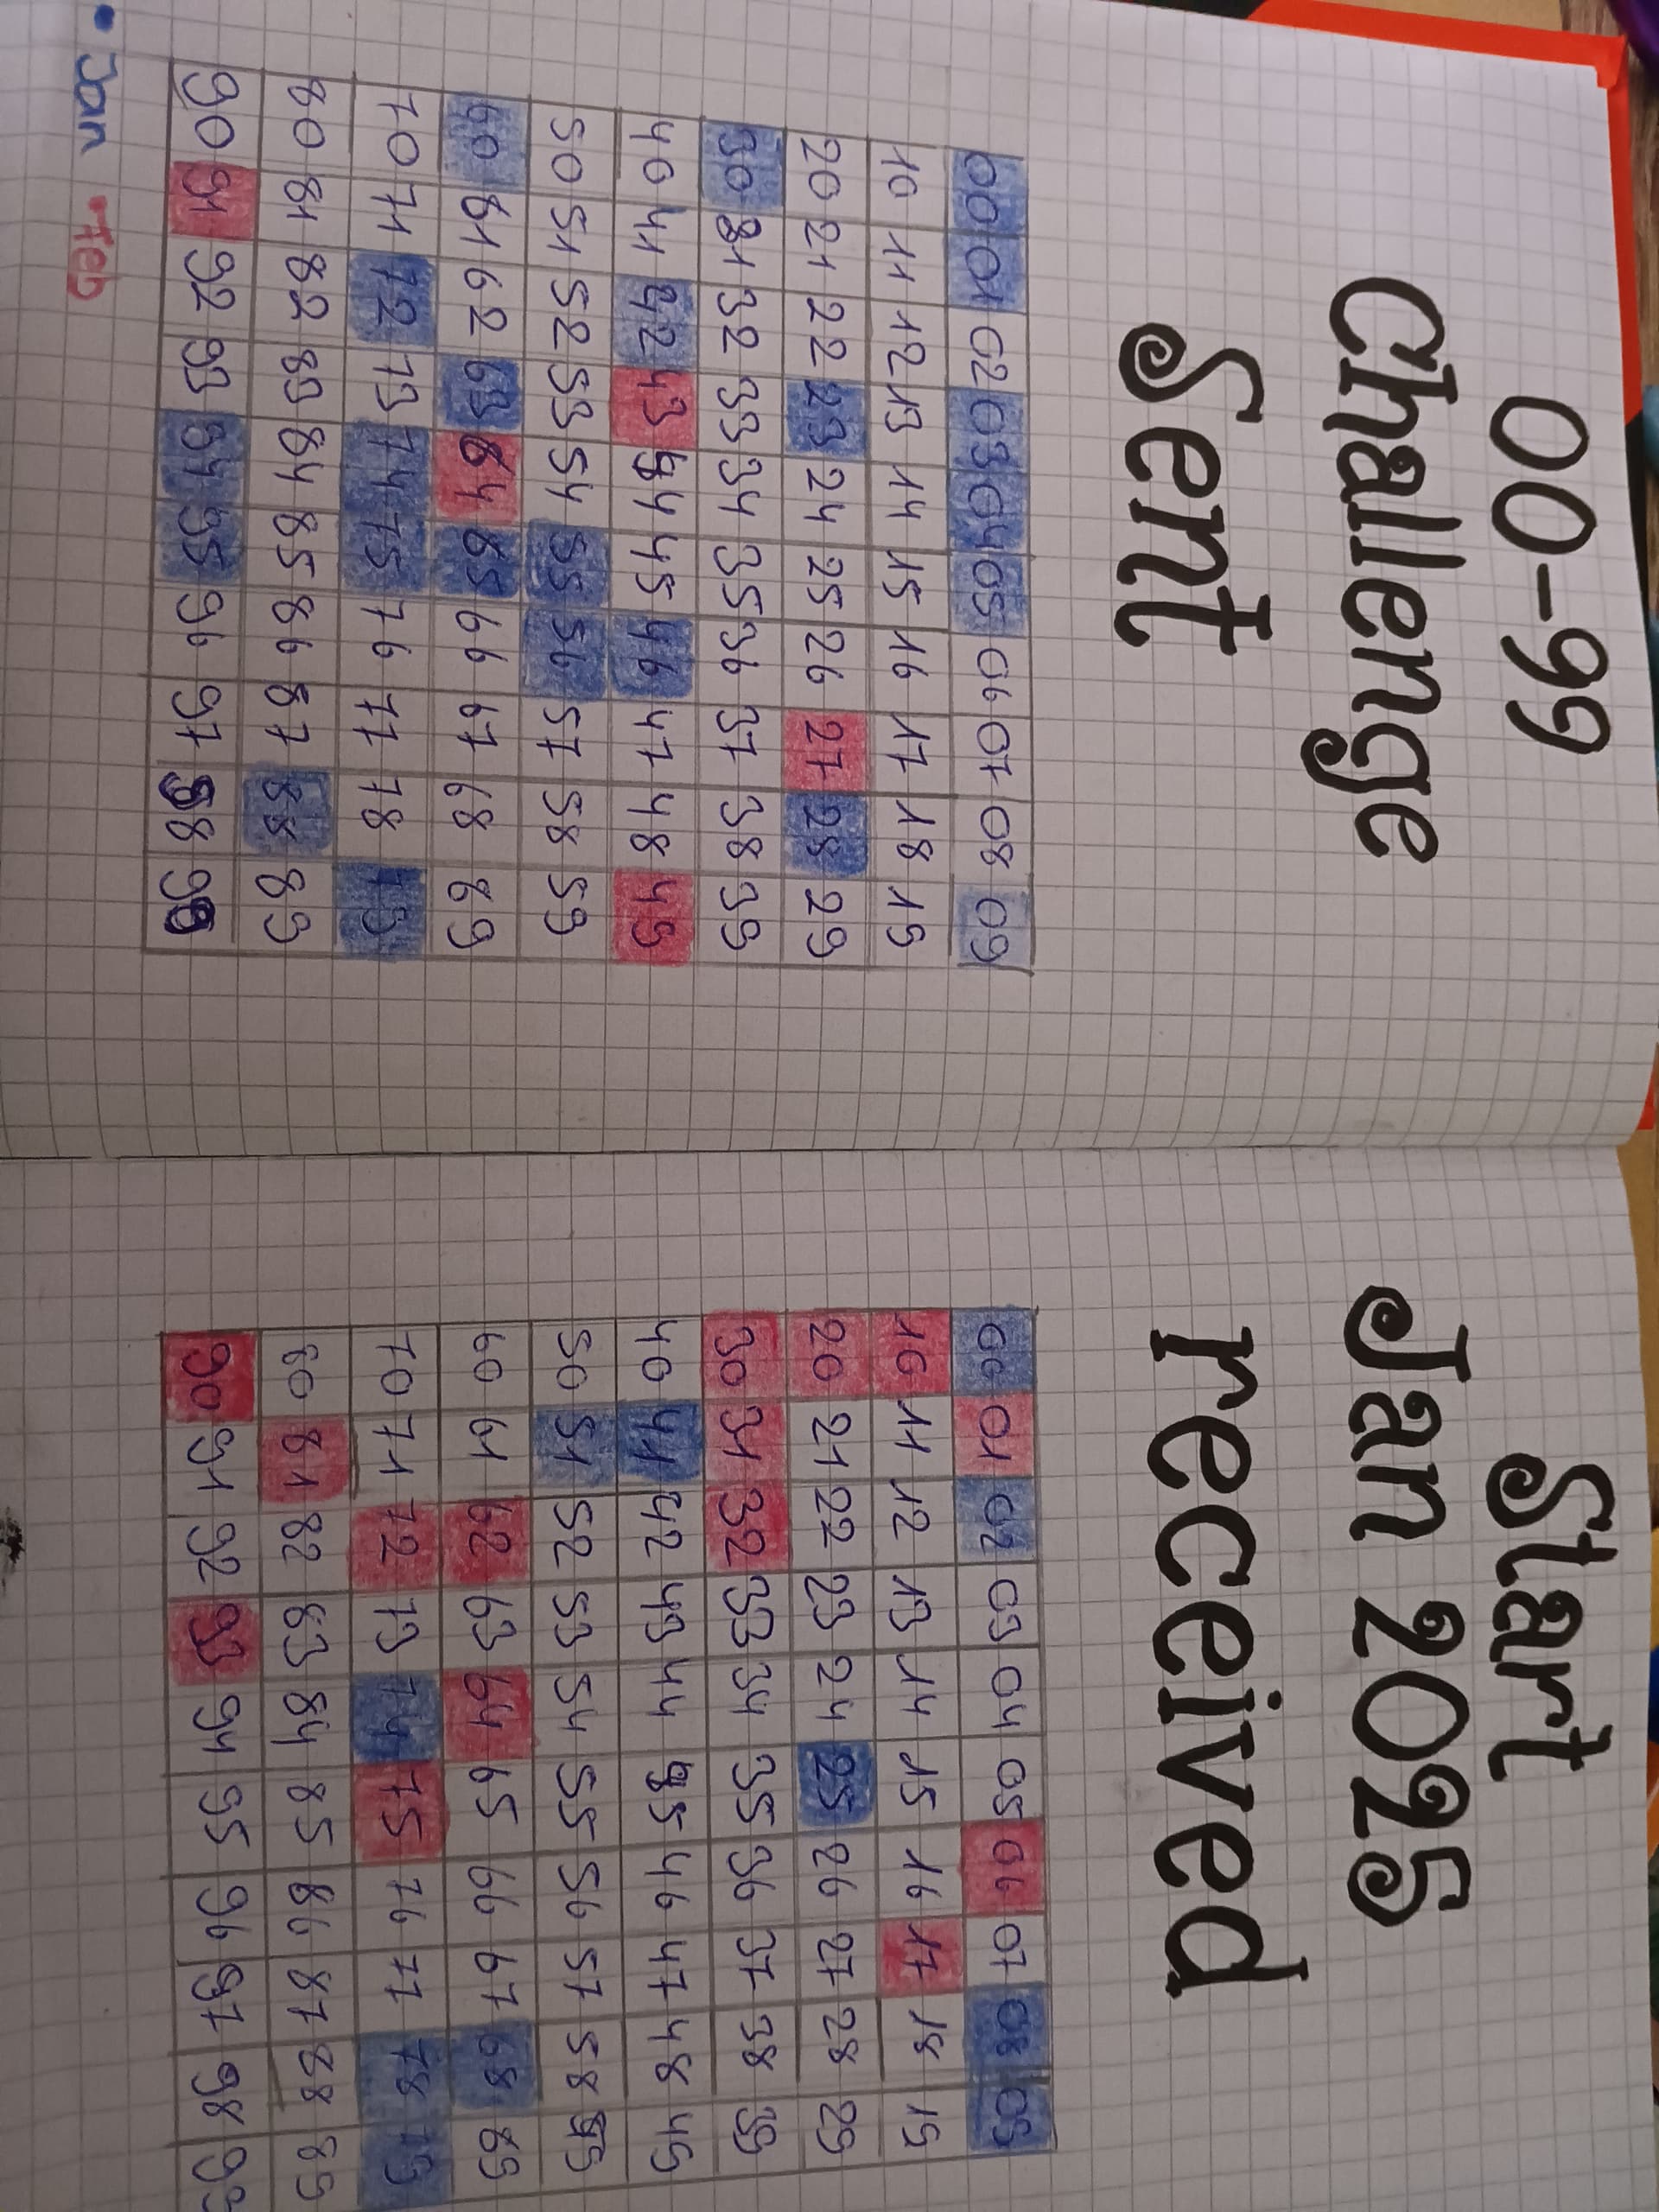 00-99
Challenge
Sent
00 01 02 03 04 05 06 07 08 09
10 11 12 13 14 15 16 17 18 19
20 21 22 23 24 25 26 27 28 29
30 31 32 33 34 35 36 37 38 39
40 41 42 43 44 45 46 47 48 49
50 51 52 53 54 55 56 57 58 59
60 61 62 63 64 65 66 67 68 69
70 71 72 73 74 75 76 77 78 79
80 81 82 83 84 85 86 87 88 89
90 91 92 93 94 95 96 97 98 99
• Jan • Feb
Start
Jan 2025
received
00 01 02 03 04 05 06 07 08 09
10 11 12 13 14 15 16 17 18 19
20 21 22 23 24 25 26 27 28 29
30 31 32 33 34 35 36 37 38 39
40 41 42 43 44 45 46 47 48 49
50 51 52 53 54 55 56 57 58 59
60 61 62 63 64 65 66 67 68 69
70 71 72 73 74 75 76 77 78 79
80 81 82 83 84 85 86 87 88 89
90 91 92 93 94 95 96 97 98 99